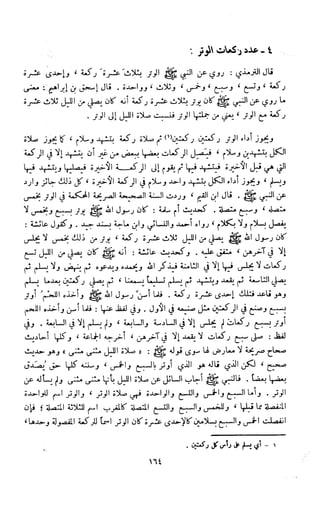 ٤ - عدد ركعات الوتر :
قال الترمذي : روي عن النبي ﷺ الوتر بثلاث عشرة ركعة ، وإحدى عشرة
ركعة ، وتسع ، وسبع ، وخمس ، وثلاث ، وواحدة . قال إسحق بن إبراهيم : معنى
ما روي عن النبي ﷺ كان يوتر بثلاث عشرة ركعة أنه كان يصلي من الليل ثلاث عشرة
ركعة مع الوتر ، يعني من جملتها الوتر فنسبت صلاة الليل إلى الوتر .
ويجوز أداء الوتر ركعتين ركعتين(١) ثم صلاة ركعة بتشهد وسلام ، كما يجوز صلاة
الكل بتشهدين وسلام ، فيصل الركعات بعضها ببعض من غير أن يتشهد إلا في الركعة
التي هي قبل الأخيرة فيتشهد فيها ثم يقوم إلى الركعة الأخيرة فيصليها ويتشهد فيها
ويسلم ، ويجوز أداء الكل بتشهد واحد وسلام في الركعة الأخيرة ، كل ذلك جائز وارد
عن النبي ﷺ . قال ابن القيم : وردت السنة الصحيحة الصريحة المحكمة في الوتر بخمس
متصلة ، وسبع متصلة . كحديث أم سلمة : كان رسول الله ﷺ يوتر بسبع وبخمس لا
يفصل بسلام ولا بكلام ، رواه أحمد والنسائي وابن ماجة بسند جيد . وكقول عائشة :
كان رسول الله ﷺ يصلي من الليل ثلاث عشرة ركعة ، يوتر من ذلك بخمس لا يجلس
إلا في آخرهن ، متفق عليه . وكحديث عائشة : أنه ﷺ كان يصلي من الليل تسع
ركعات لا يجلس فيها إلا في الثامنة فيذكر الله ويحمده ويدعوه ثم ينهض ولا يسلم ثم
يصلي التاسعة ثم يقعد ويتشهد ثم يسلم تسليماً يسمعنا ، ثم يصلي ركعتين بعدما يسلم
وهو قاعد فتلك إحدى عشرة ركعة . فلما أسن رسول الله ﷺ وأخذه اللحم أوتر
بسبع وصنع في الركعتين مثل صنيعه في الأول . وفي لفظ عنها : فلما أسن وأخذه اللحم
أوتر بسبع ركعات لم يجلس إلا في السادسة والسابعة ، ولم يسلم إلا في السابعة . وفي
لفظ : صلى سبع ركعات لا يقعد إلا في آخرهن ، أخرجه الجماعة ، وكلها أحاديث
صحاح صريحة لا معارض لها سوى قوله ﷺ : « صلاة الليل مثنى مثنى » وهو حديث
صحيح ، لكن الذي قاله هو الذي أوتر بالسبع والخمس ، وسنته كلها حق يُصدق
بعضها بعضاً . فالنبي ﷺ أجاب السائل عن صلاة الليل بأنها مثنى مثنى ولم يسأله عن
الوتر . وأما السبع والخمس والتسع والواحدة فهي صلاة الوتر ، والوتر اسم للواحدة
المنفصلة مما قبلها ، وللخمس والسبع والتسع المتصلة كالمغرب اسم للثلاثة المتصلة ، فإن
انفصلت الخمس والسبع بسلامين كالإحدى عشرة كان الوتر اسماً للركعة المفصولة وحدها ،
١ - أي يسلم على رأس كل ركعتين .
١٦٤